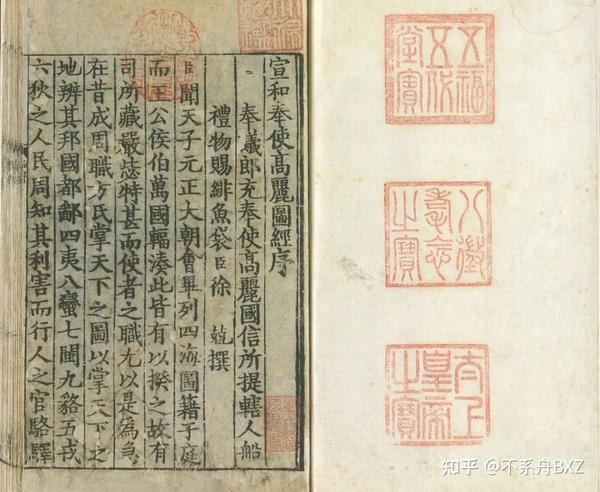 五福
五代
堂寶
八徵
耄念
之寶
太上
皇帝
之寶
宣和奉使髙麗圖經序
奉義郎充奉使髙麗國信所提轄人船
禮物賜緋魚袋臣徐 兢撰
臣聞天子元正大朝會畢列四海圖籍于庭
而王公侯伯萬國輻湊此皆有以揆之故有
司所藏嚴毖特甚而使者之職尤以是為急
在昔成周職方氏掌天下之圖以掌天下之
地辨其邦國都鄙四夷八蠻七閩九貉五戎
六狄之人民周知其利害而行人之官駱驛
知乎 @不系舟BXZ